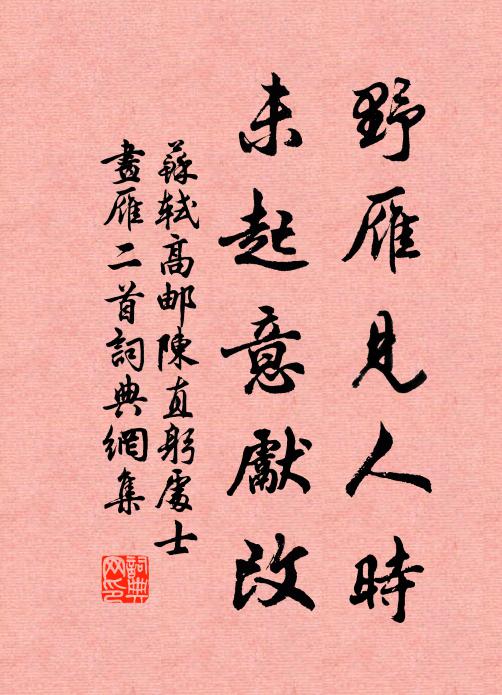 野雁見人時
未起意獻改
蘇軾高邮陳直躬處士
畫雁二首詞典網集
詞典
网印